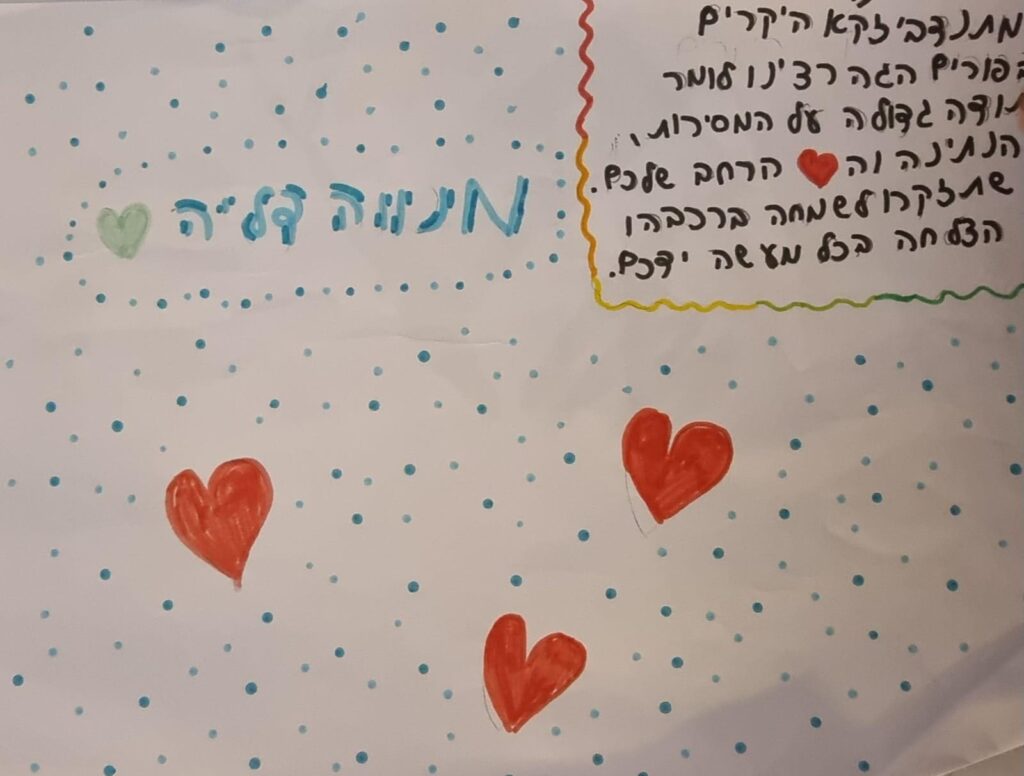 מתנדבי זקא היקרים
בפורים הזה רצינו לומר
תודה גדולה על המסירות,
הנתינה וה❤ הרחב שלכם.
לשמחה
הצלחה בכל מעשה ידכם.
דלייה